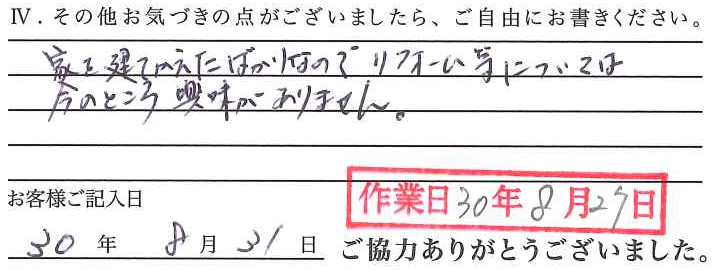 Ⅳ．その他お気づきの点がございましたら、ご自由にお書きください。
家を建てかえたばかりなので リフォーム等については
今のところ 興味が ありません。
お客様ご記入日
作業日30年8月27日
30 年 8 月 31 日
ご協力ありがとうございました。